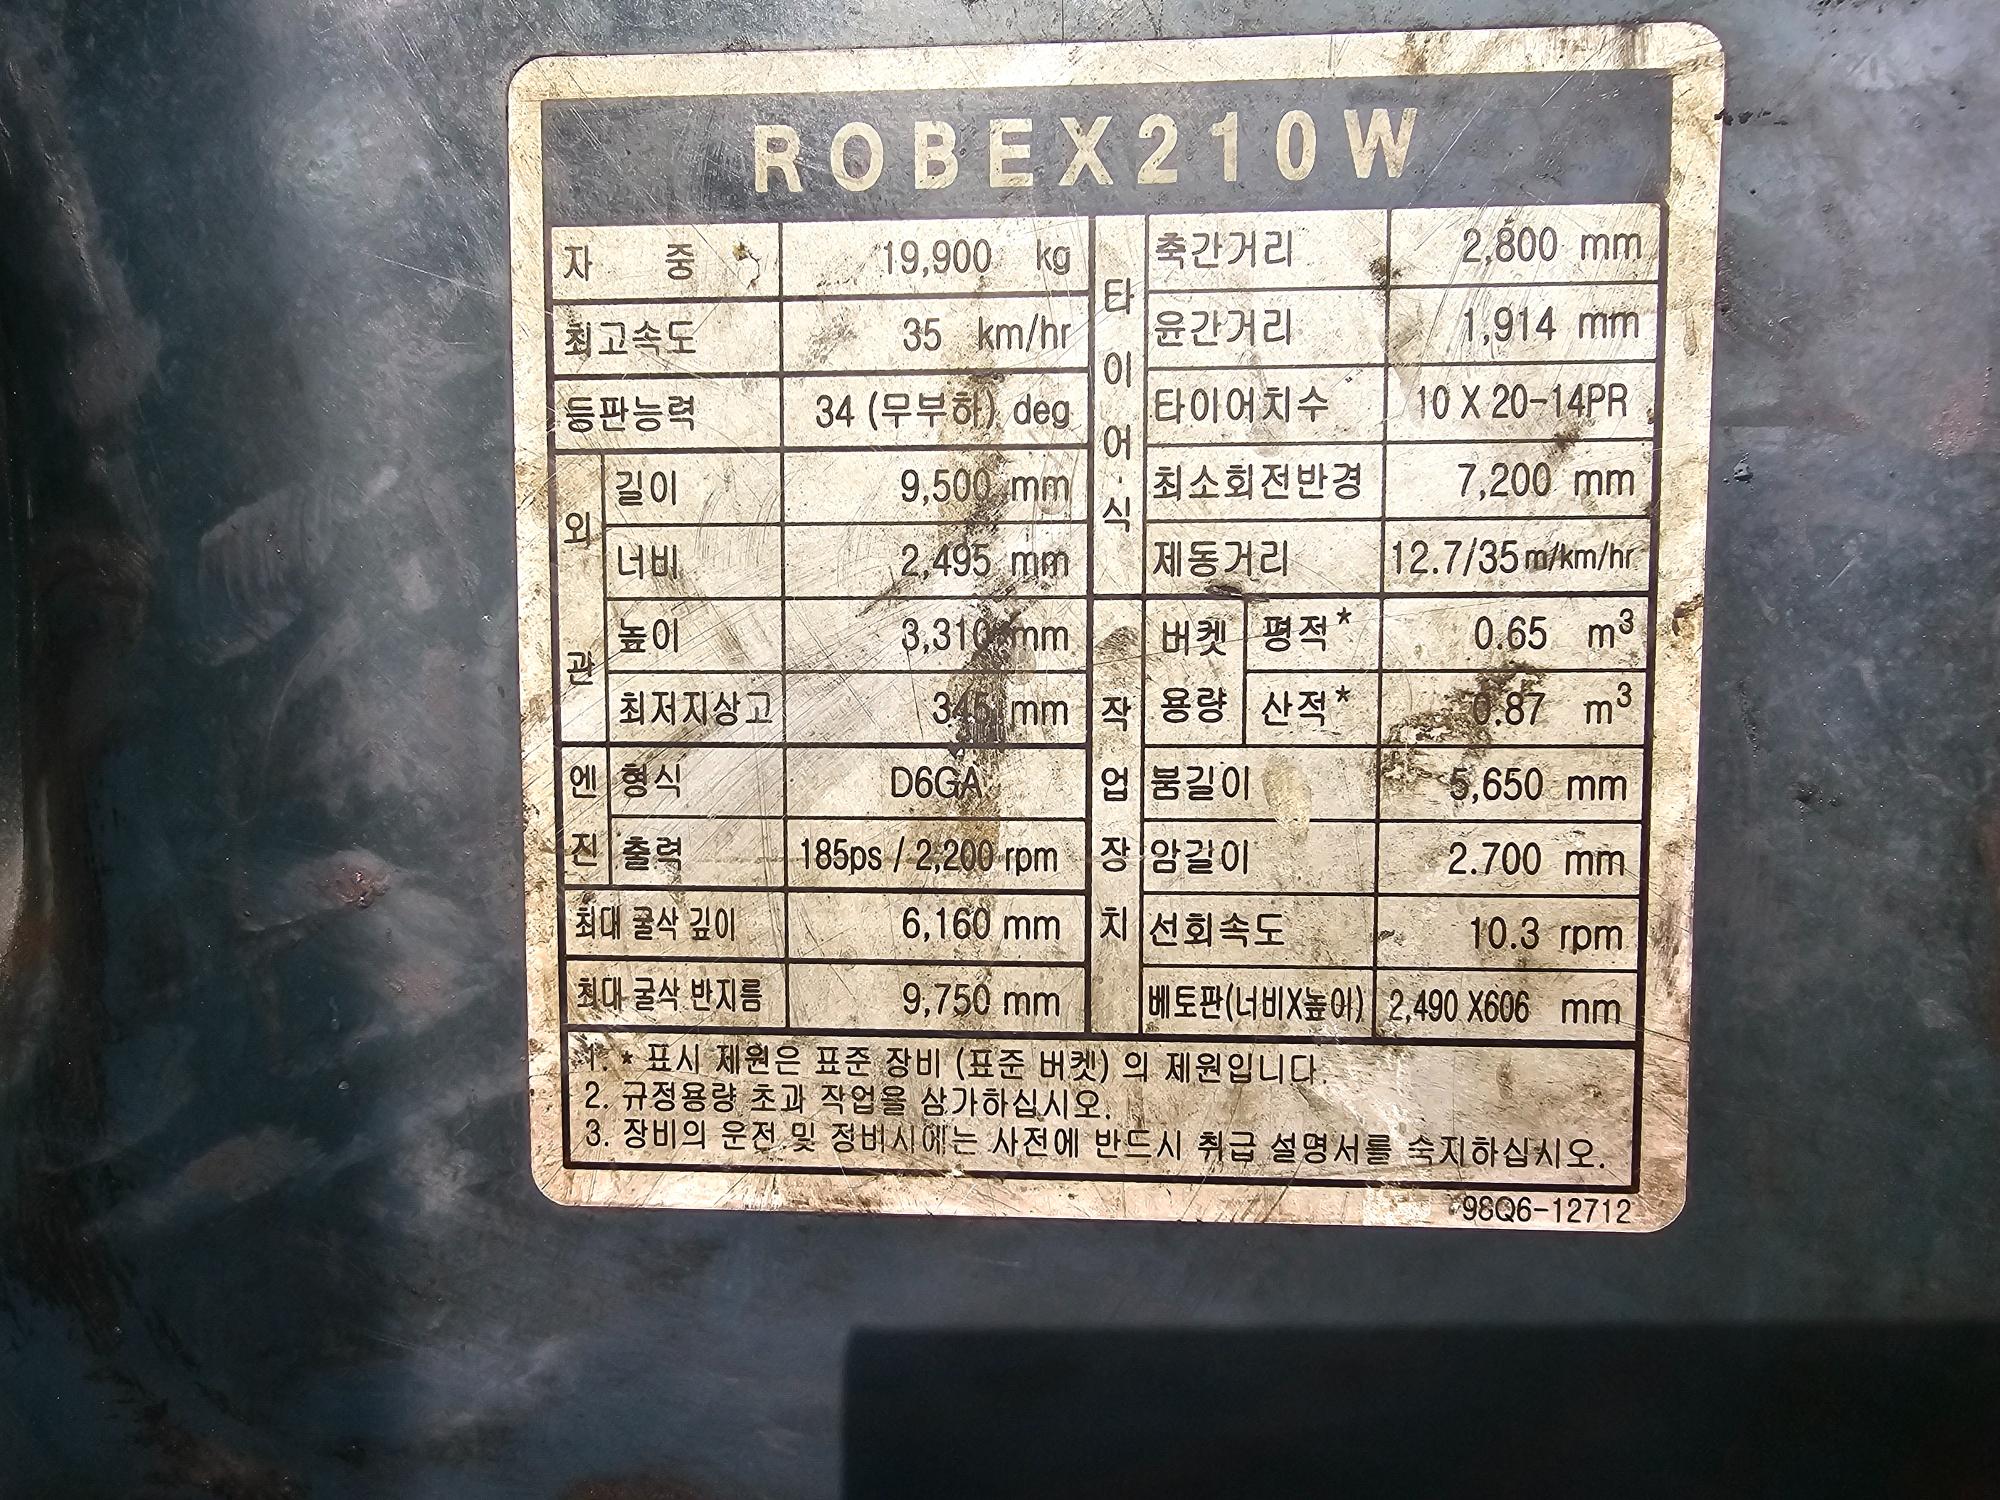 ROBEX210W
자 중 19,900 kg
최고속도 35 km/hr
등판능력 34 (무부하) deg
외관
길이 9,500 mm
너비 2,495 mm
높이 3,310 mm
최저지상고 345 mm
엔진
형식 D6GA
출력 185ps / 2,200 rpm
최대 굴삭 깊이 6,160 mm
최대 굴삭 반지름 9,750 mm
타이어식
축간거리 2,800 mm
윤간거리 1,914 mm
타이어치수 10 X 20-14PR
최소회전반경 7,200 mm
제동거리 12.7/35 m/km/hr
작업장치
버켓 용량
평적* 0.65 m³
산적* 0.87 m³
붐길이 5,650 mm
암길이 2.700 mm
선회속도 10.3 rpm
베토판(너비X높이) 2,490 X606 mm
1. * 표시 제원은 표준 장비 (표준 버켓) 의 제원입니다.
2. 규정용량 초과 작업을 삼가하십시오.
3. 장비의 운전 및 정비시에는 사전에 반드시 취급 설명서를 숙지하십시오.
98Q6-12712